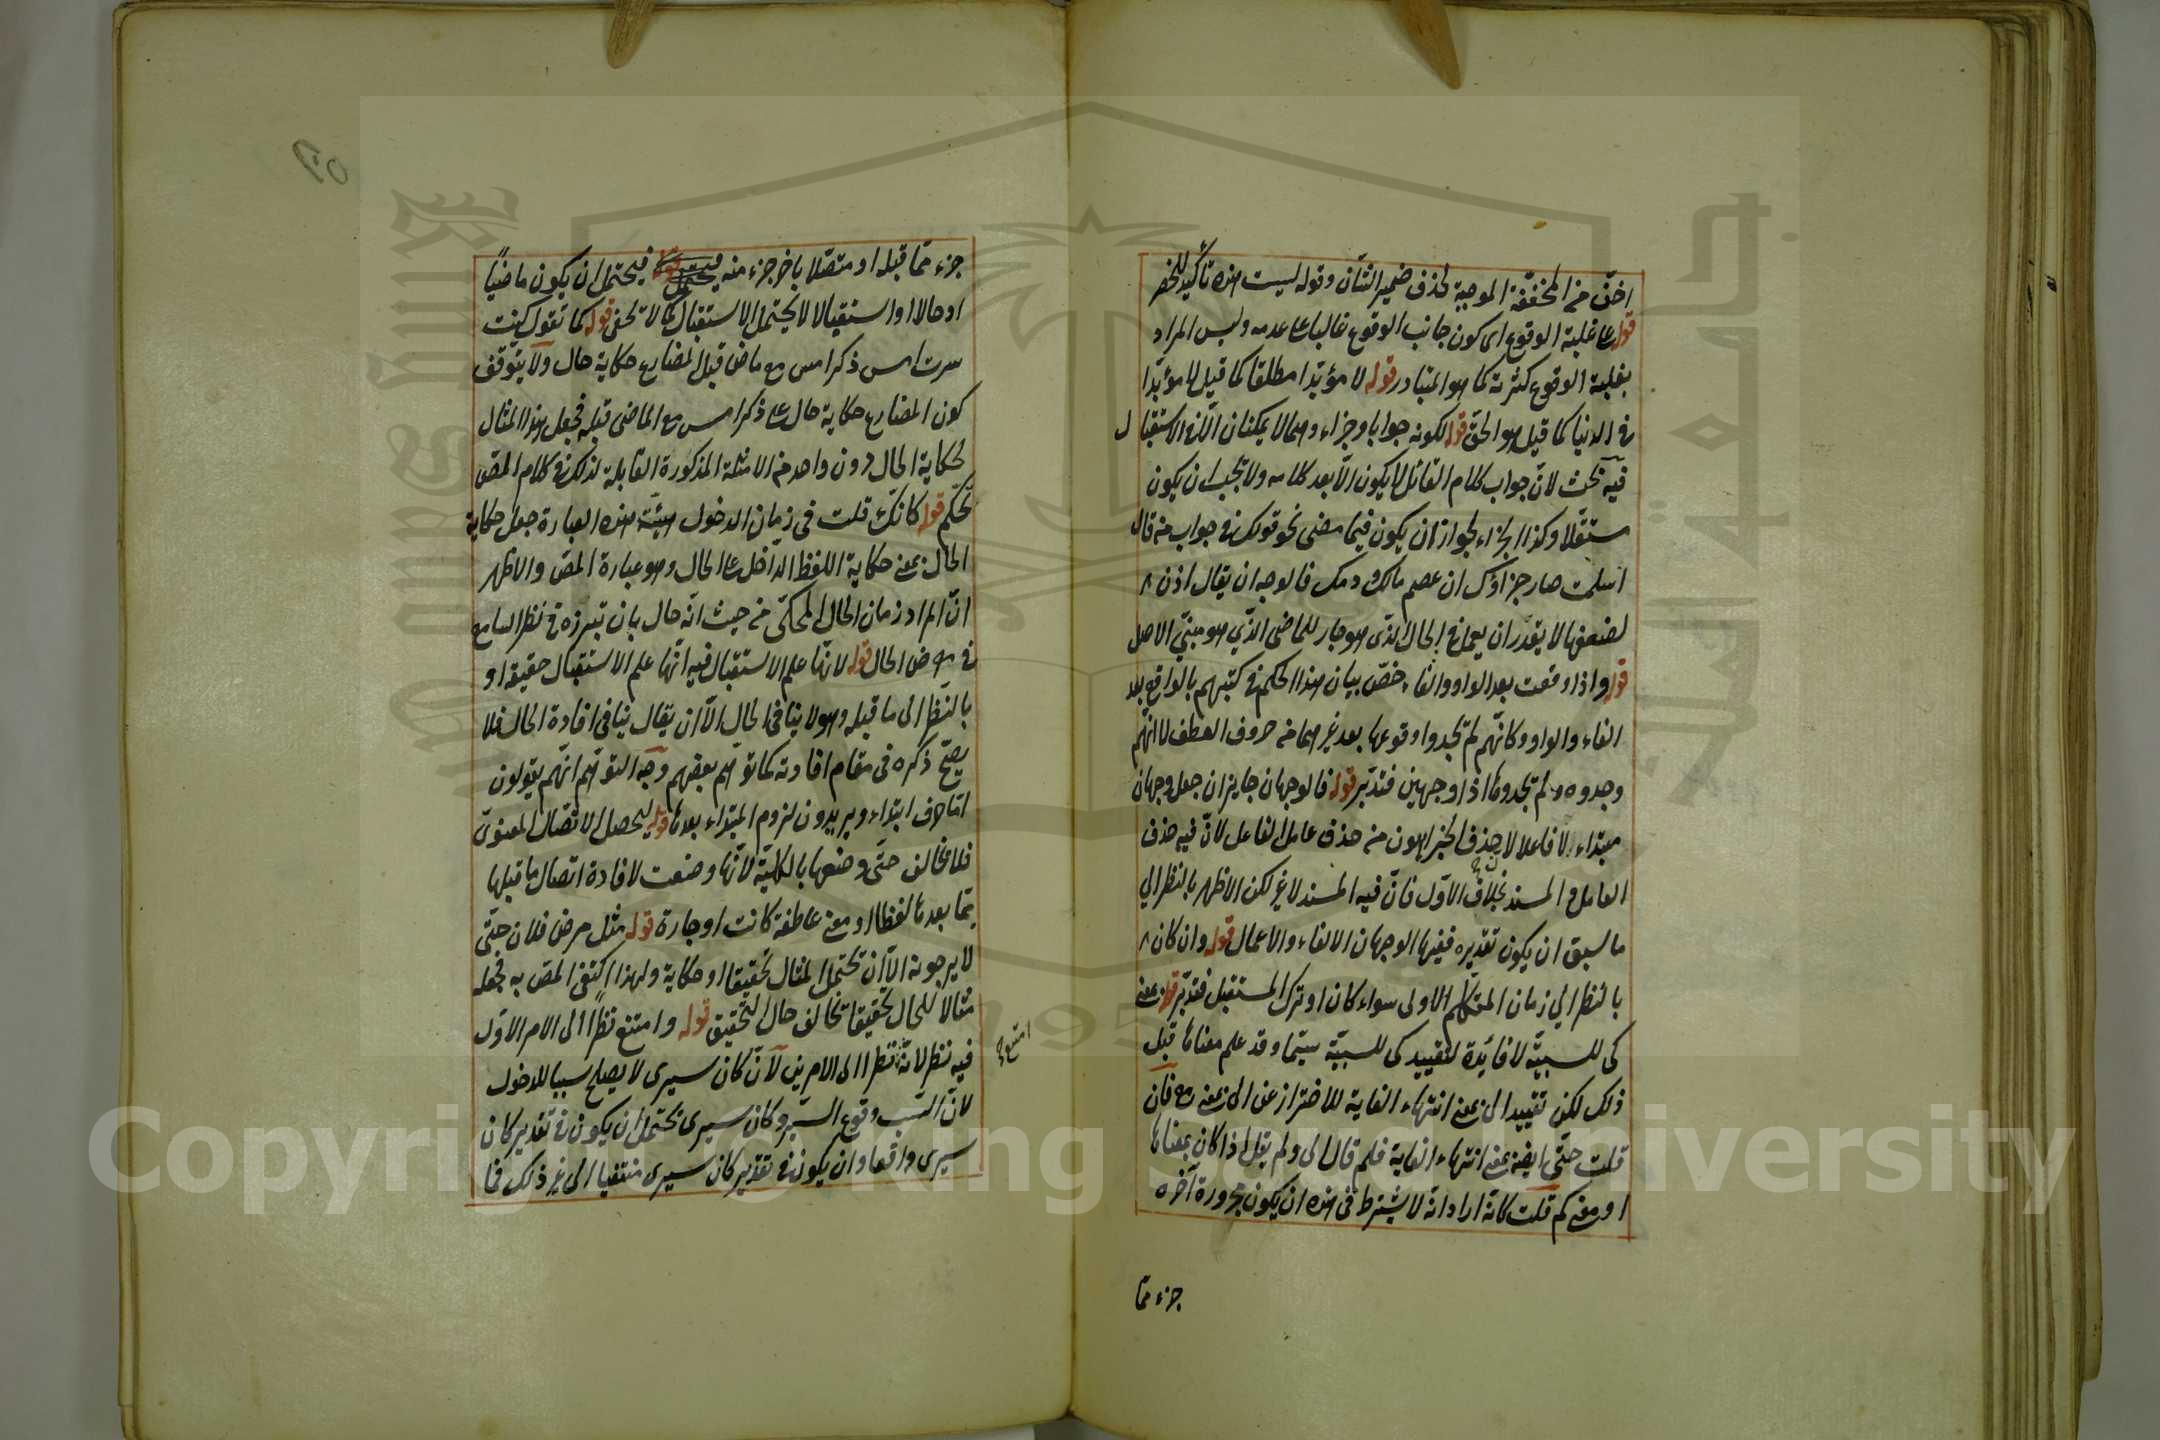 اخفّ من المخففة الموجبة لحذف ضمير الشأن وقوله ليست هذه تأكيد للحصر
قوله على غلبة الوقوع اى كون جانب الوقوع غالبا على عدمه وليس المراد
بغلبة الوقوع كثرته كما هو المتبادر قوله لا مؤبّدا مطلقا كما قيل لا مؤبّدا
فى الدنيا كما قيل هو الحق قوله لكونه جوابا وجزاء وهما لا يمكنان الّا فى الاستقبال
فيه بحث لانّ جواب كلام القائل لا يكون الّا بعد كلامه ولا يجب ان يكون
مستقلا وكذا الجزاء لجواز ان يكون فيما مضى نحو قولك فى جواب من قال
اسلمت صار جزاؤك ان عصم مالك ودمك فالوجه ان يقال اذن
لضعفها لا يقدر ان يعمل فى الحال الذى هو جار للماضى الذي هو مبنىّ الاصل
قوله واذا وقعت بعد الواو والفاء خصّ بيان هذا الحكم فى كتبهم بالواقع بعد
الفاء والواو وكانّهم لم يجدوا وقوعها بعد غيرهما من حروف العطف لا انّهم
وجدوه ولم يجدوا اذا وجهين فتدبّر قوله فالوجهان جايزان جعل وجهان
مبتداء لا فاعلا لا حذف الخبر اهون من حذف عامل الفاعل لانّ فيه حذف
العامل والمسند بخلاف الاوّل فانّ فيه المسند لا غير لكن الاظهر بالنظر الى
ما سبق ان يكون تقديره ففيها الوجهان الالغاء والاعمال قوله وان كان
بالنظر الى زمان المتكلم الاولى سواء كان او ترك المستقبل فتدبّر قوله بمعنى
كى للسببيّة لا فائدة لتقييد كى للسببيّة سيّما وقد علم معناها قبل
ذلك لكن تقييد الى بمعنى انتهاء الغاية للاحتراز عن الى بمعنى مع فان
قلت حتّى ايضا بمعنى انتهاء الغاية فلم قال الى ولم يقل اذا كان بمعناها
او معنى كى قلت كانه اراد انه لا يشترط فى هذه ان يكون مجرورة آخره
جزء ممّا
جزء ممّا قبله او متصّلا باخر جزء منه قوله فيحتمل ان يكون ماضيًا
او حالا او استقبالا لا يحتمل الاستقبال كما لا يخفى قوله كما تقول كنت
سرت امس ذكر امس مع ماض قبل المضارع حكاية حال ولا يتوقف
كون المضارع حكاية حال على ذكر امس مع الماضى قبله فجعل هذا المثال
لحكاية الحال دون واحد من الامثلة المذكورة القابلة لذلك فى كلام المص
تحكّم قوله كانّك قلت فى زمان الدخول هيّئة هذه العبارة جعل حكاية
الحال بمعنى حكاية اللفظ الدّاخل على الحال وهو عبارة المص والاظهر
انّ المراد زمان الحال المحكىّ من حيث انّه حال بان تبرزه فى نظر السامع
فى معرض الحال قوله لانّها علم الاستقبال فيه انّها علم الاستقبال حقيقة او
بالنظر الى ما قبله وهو لا ينافى الحال الّا ان يقال ينافى افادة الحال فلا
يصحّ ذكره فى مقام افادته كما توهم بعضهم وجه التوهّم انّهم يقولون
امّا لاف ابتداء ويريدون لزوم المبتداء بعدها قوله ليحصل الاتصال المعنوىّ
فلا تخالف حتّى وضعها بالكليّة لانّها وضعت لافادة اتصال ما قبلها
بمّا بعدها لفظا او معنى عاطفة كانت او جارة قوله مثل مرض فلان حتّى
لا يرجونه الّا ان تحتمل المثال تحقيقا او حكاية ولهذا اكتفى المص به فجعله
مثالا للحال تحقيقا تخالف حال التحقيق قوله وامتنع نظرًا الى الامر الاوّل
فيه نظر لانّه نظرا الى الامرين لانّ كان سيرى لا يصلح سببا للدخول
امتنع
لانّ السّبب وقوع السّير وكان سيرى يحتمل ان يكون فى تقدير كان
سيرى واقعا وان يكون فى تقدير كان سيرى منتفيا الى غير ذلك فا
Copyright © King Saud University
1957